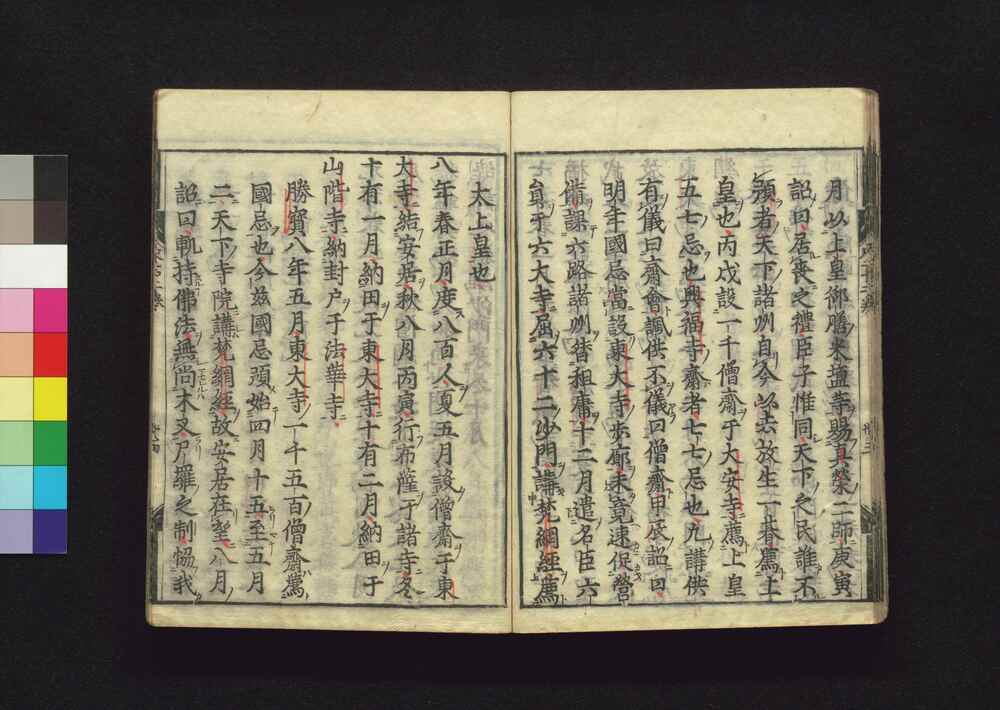 月以上皇御膳米塩等賜眞榮二師庚寅
詔曰居喪之禮臣子惟同天下之民誰不
須者天下諸州自今以去放生一替爲上
皇也丙戌設一千僧齋于大安寺薦上皇
五七忌也興福寺齋者七七忌也凡講供
有儀曰齋會諷供不儀曰僧齋甲辰詔曰
明年國忌當設東大寺步廊未竟速促營
備課六路諸州替租庸十二月遣名臣六
員于六大寺屈六十二沙門講梵網經薦
太上皇也
八年春正月度八百人夏五月設僧齋于東
大寺結安居秋八月丙寅行布薩于諸寺冬
十有一月納田于東大寺十有二月納田于
山階寺納封戸于法華寺
勝寶八年五月東大寺一千五百僧齋薦
國忌也今茲國忌須始四月十五至五月
二天下寺院講梵網經故安居在望八月
詔曰軌持佛法無尚木叉尸羅之制恊我